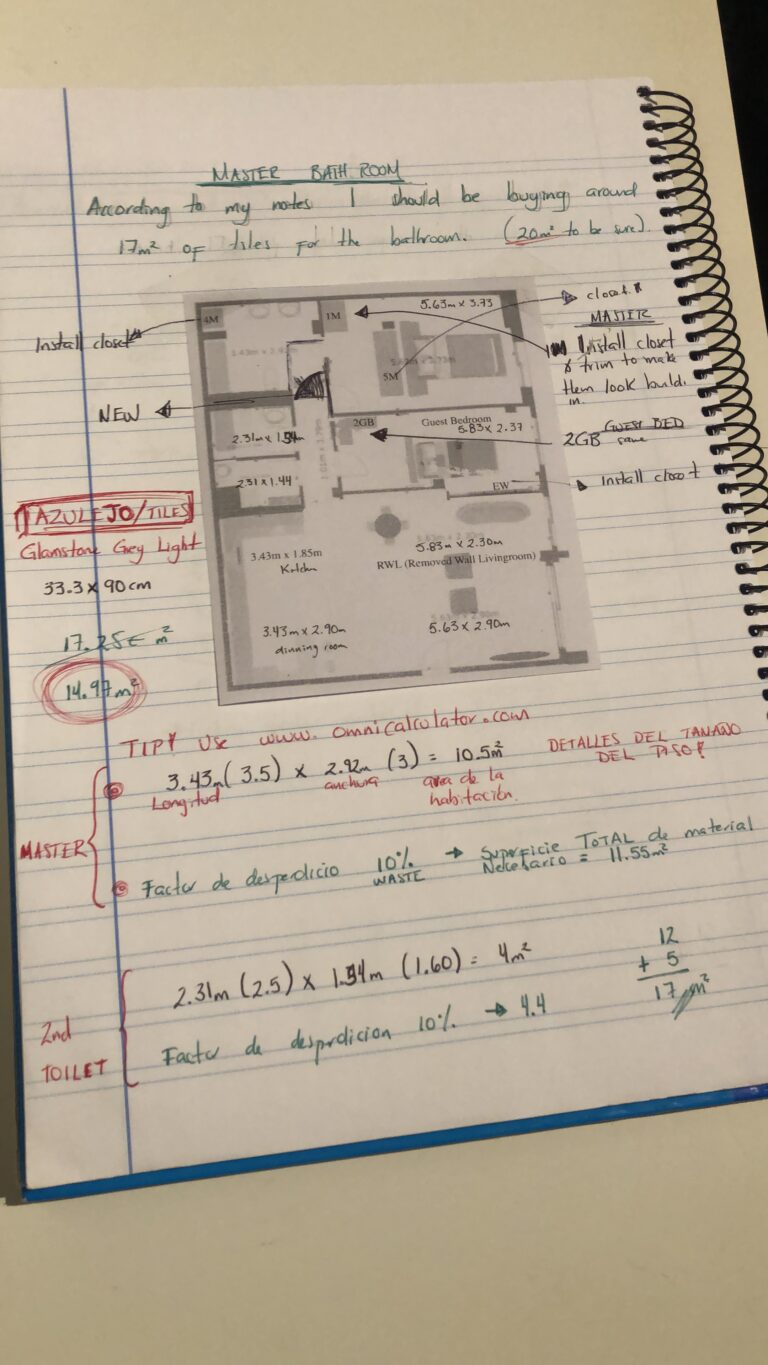 MASTER BATH ROOM
According to my notes I should be buying around
17m² of tiles for the bathroom. (20m² to be sure).
Install closet
NEW
4M
1M
5.63m x 3.73
5M
2.31m x 1.54m
2.31 x 1.44
2GB
Guest Bedroom
5.83 x 2.37
EW
3.43m x 1.85m
Kitchen
5.83m x 2.30m
RWL (Removed Wall Livingroom)
3.43m x 2.90m
dinning room
5.63 x 2.90m
closet
MASTER
Install closet
& trim to make
them look build.
in.
GUEST BED
2GB same
Install closet
AZULEJO/TILES
Glamstone Grey Light
33.3 x 90 cm
17.25€ m²
14.97m²
TIP! Use www.omnicalculator.com
3.43m (3.5) x 2.92m (3) = 10.5m²
Longitud anchura area de la
habitación.
DETALLES DEL TAMAÑO
DEL PISO!
MASTER
Factor de desperdicio 10% → Superficie TOTAL de material
WASTE Necesario = 11.55m²
2nd
TOILET
2.31m (2.5) x 1.54m (1.60) = 4m²
Factor de desprdicion 10% → 4.4
12
+ 5
17 m²